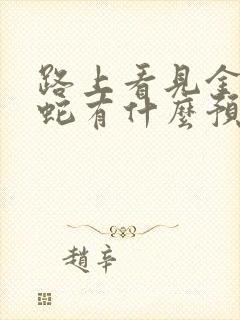 路上看見金
蛇有什麼預
趙辛